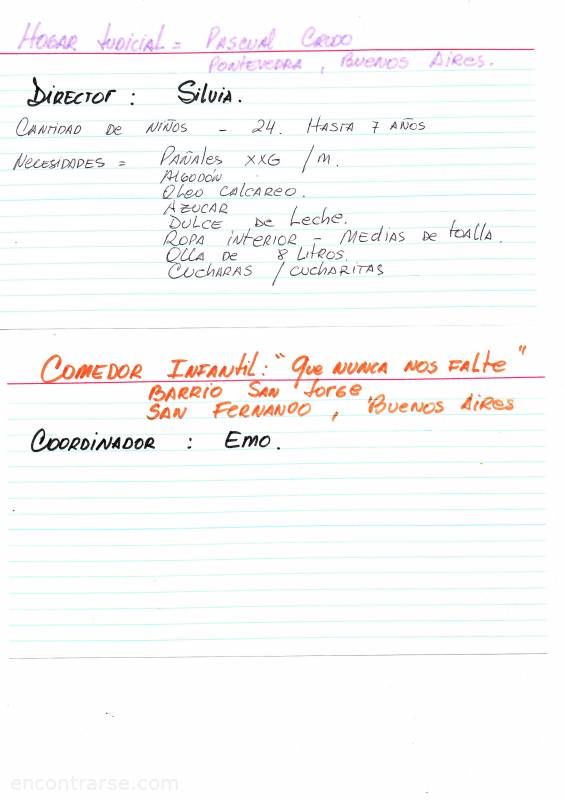 Hogar Judicial = Pascual Crudo
Pontevedra, Buenos Aires.
Director : Silvia.
Cantidad de niños - 24. Hasta 7 años
Necesidades = Pañales XXG / M.
Algodón
Oleo calcareo.
Azucar
Dulce de Leche.
Ropa interior - Medias de toalla.
Olla de 8 litros.
Cucharas / cucharitas
Comedor Infantil: "Que nunca nos falte"
Barrio San Jorge
San Fernando, Buenos Aires
Coordinador : Emo.
encontrarse.com